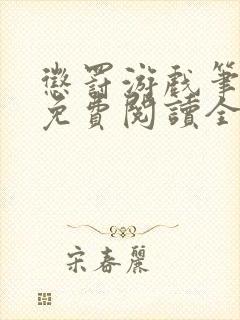 懲罰游戲筆
免費閱讀全
宋春麗